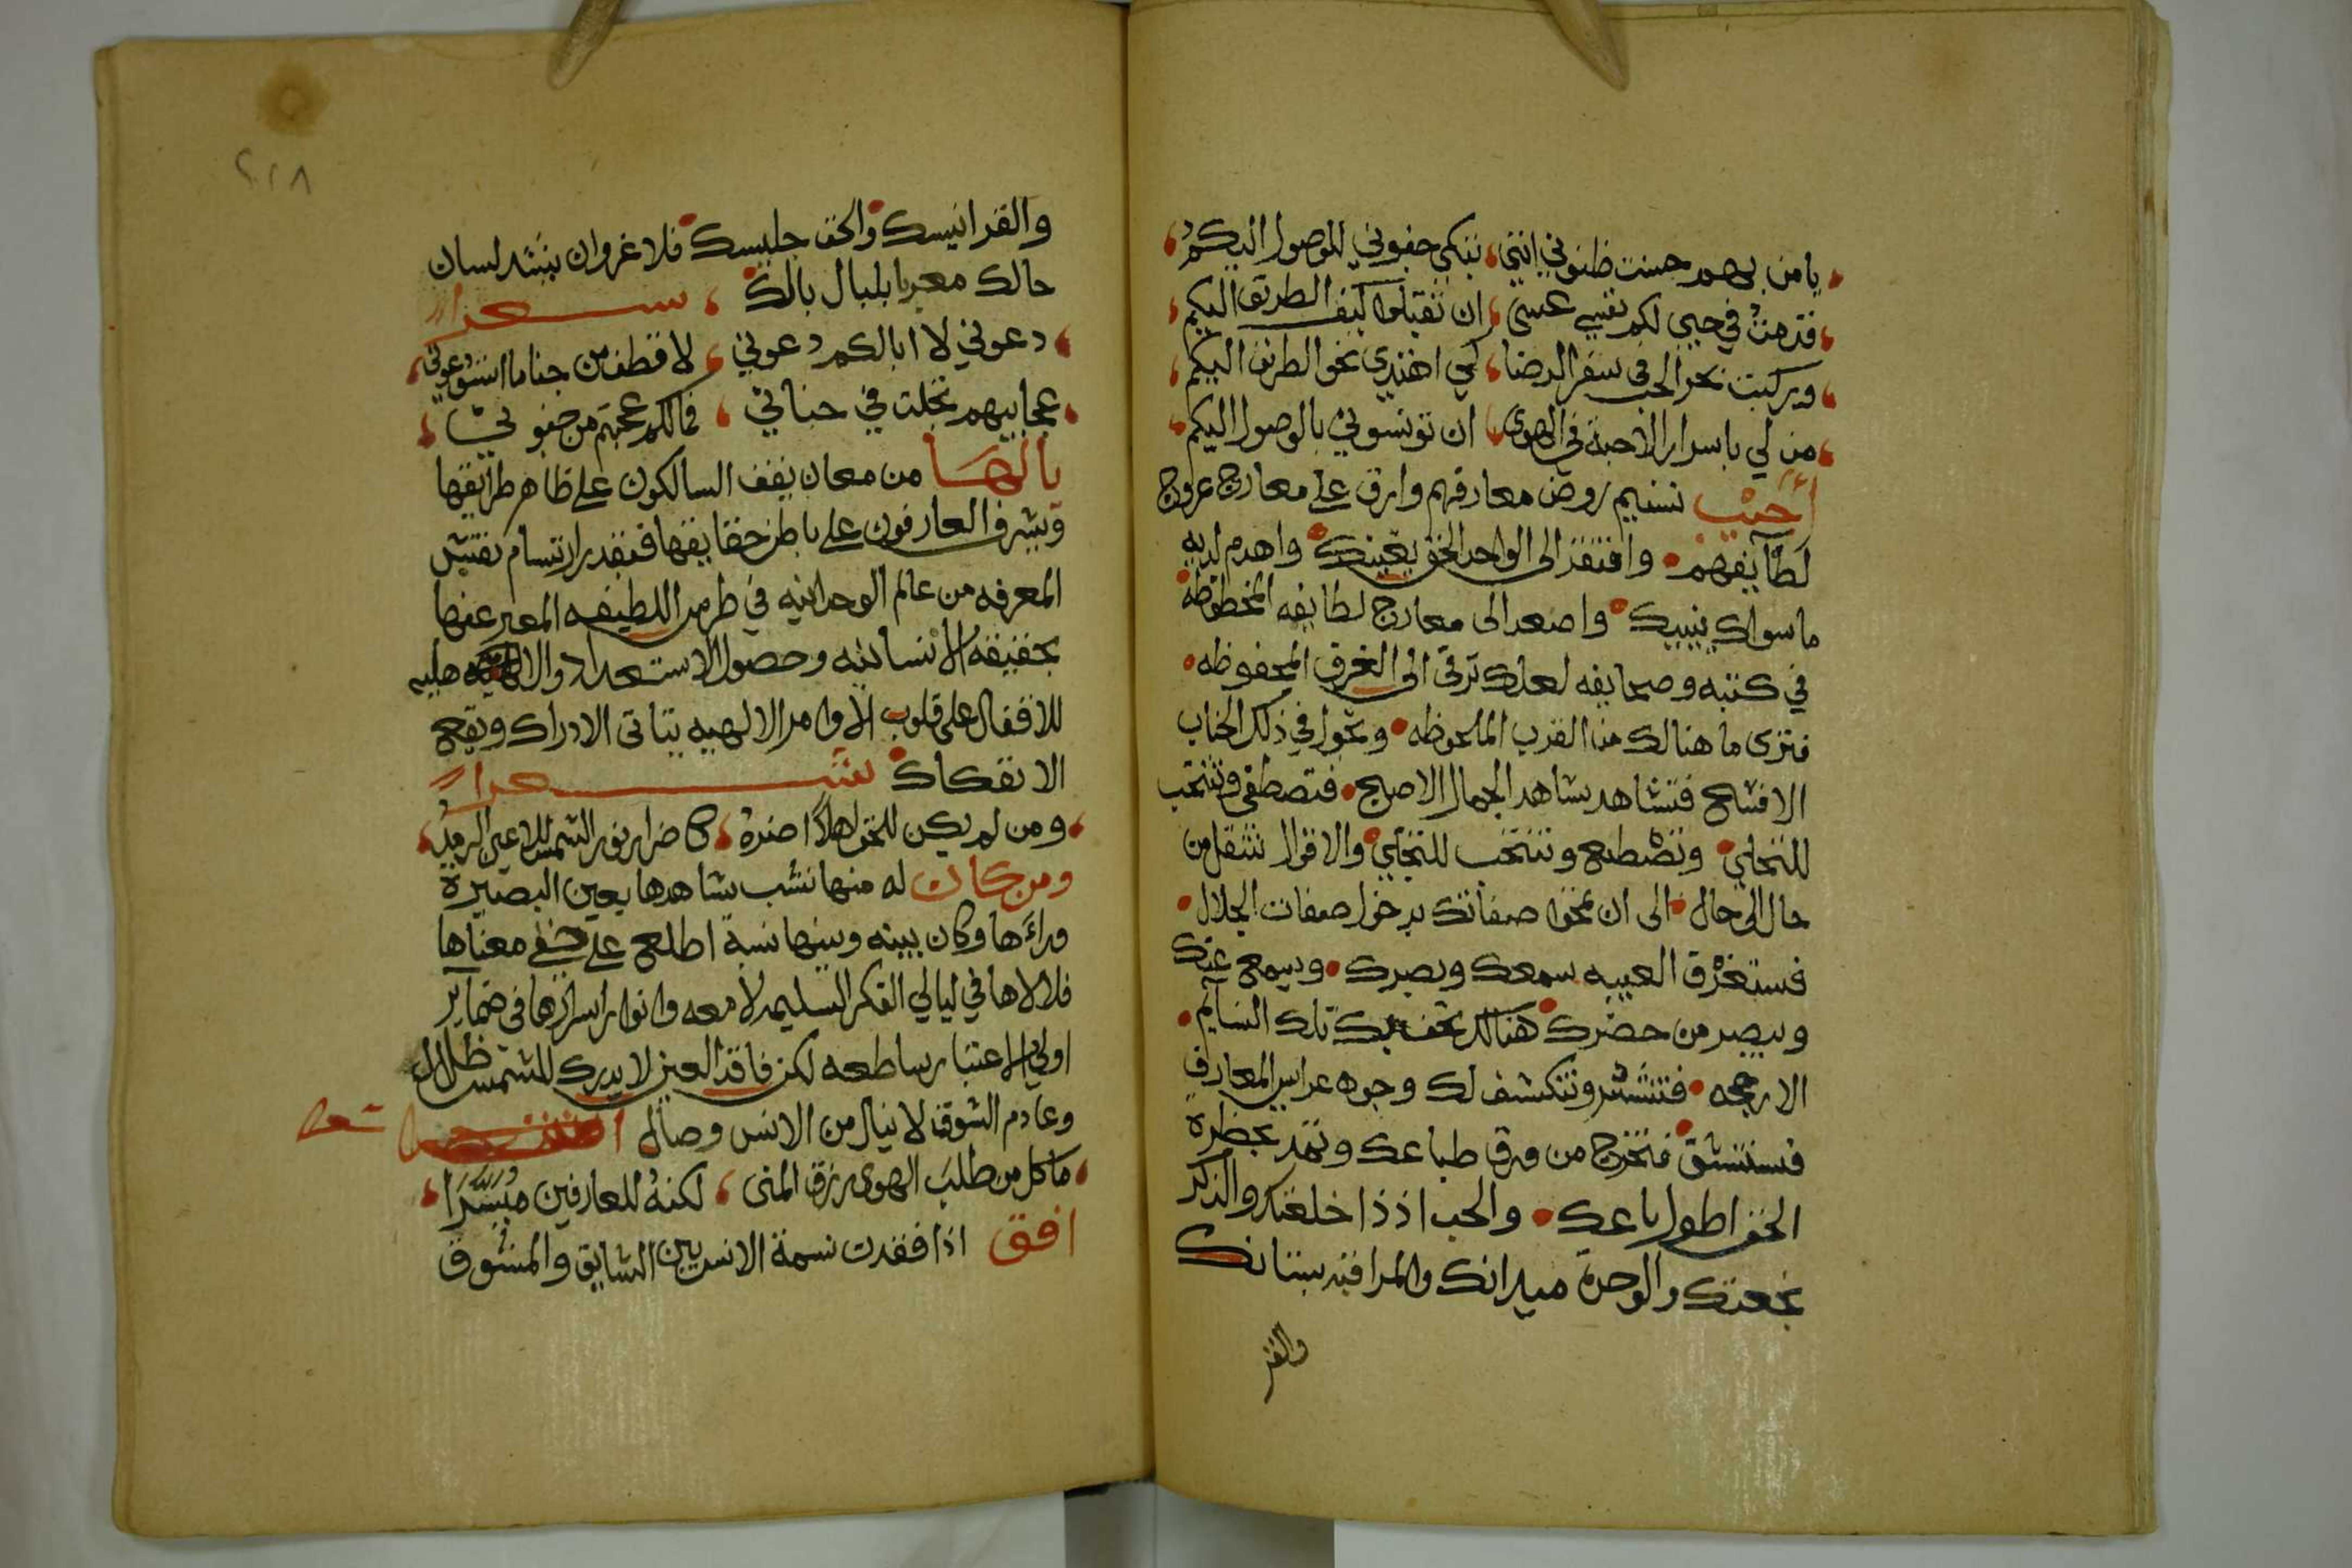 يا من بهم حسنت ظنوني انني، تبكي جفوني للوصول اليكم،
فقدهت في حبي لكم نفسي عسى، ان تقبلوا كيف الطريق اليكم،
وركبت بحر الحب في سفن الرضا، كي اهتدي نحو الطريق اليكم،
من لي باسرار الاحبة في الهوى، ان تونسوني بالوصول اليكم،
نسيم روض معارفهم وارق على معارج عروج
لطآيفهم • وافتقر الى الواحد الحق بعينك • واهدم لديه
ما سواك ببيبك • واصعد الى معارج لطايفه المخطوطة
في كتبه وصحايفه لعلك ترقى الى الغرف المحفوظه •
فترى ما هنالك من القرب الملحوظه • وتجول في ذلك الجناب
الافسح فتشاهد بشاهد الجمال الاصبح • فتصطفى وتنتخب
للتخلي • وتصطنع وتنتخب للتجلي • والاقوال تنتقل من
حال الى حال • الى ان تمحوا صفاتك بدخول صفات الجلال •
فستغرق العيبه سمعك وبصرك • ويسمع عنك
ويبصر من حضرك • هنالك تحف بك تلك النسايم •
الارجحه • فتنتشر وتنكشف لك وجوه عرايس المعارف
فتستنشق • فتخرج من ورق طباعك وتمد بحظرة
الحق اطول باعك • والحب اذذا خلعتك والذكر
نجعتك والوحدة ميدانك والمراقبه بستانك
والقر
٢١٨
والقر انيسك • والحق جليسك • فلا غروان ينشد لسان
حالك معربا بلبال بالك • ، شعرا
، دعوني لا ابالكم دعوني ، لا قطف من جناما انسوعوني،
، عجابيهم تجلت في حناني ، فمالكم عجبتم من جنوني ،
يا لها من معان يقف السالكون على ظاهر طرايقها
ويشرف العارفون على باطن حقايقها فبقدر ارتسام نفتيش
المعرفه من عالم الوحدانيه في طرس اللطيفه المعبر عنها
بحقيقه الانسانيه وحصول الاستعداد والا هليه
للاقفال على قلوب الاوامر الالهيه يتاتى الادراك ويقع
الانفكاك • شعرا
، ومن لم يكن للحق اهلاً اضره ، كما ضرار نور الشمس للاعين الرمد،
ومن كان له منها نشب شاهدها بعين البصيرة
ورآءها وكان بينه وبينها نسبة اطلع على خفي معناها
فلالاها في ليالي الفكر السليمه لامعه وانوار اسرارها في ضماير
اولي الاعتبار ساطعه لكن فاقد العين لا يدرك للشمس ظلال
وعادم الشوق لا ينال من الانس وصال شعر
، ما كل من طلب الهوى رزق المنى ، لكنه للعارفين ميسرا ،
افق اذا فقدت نسمة الانس بين الشايق والمشوق